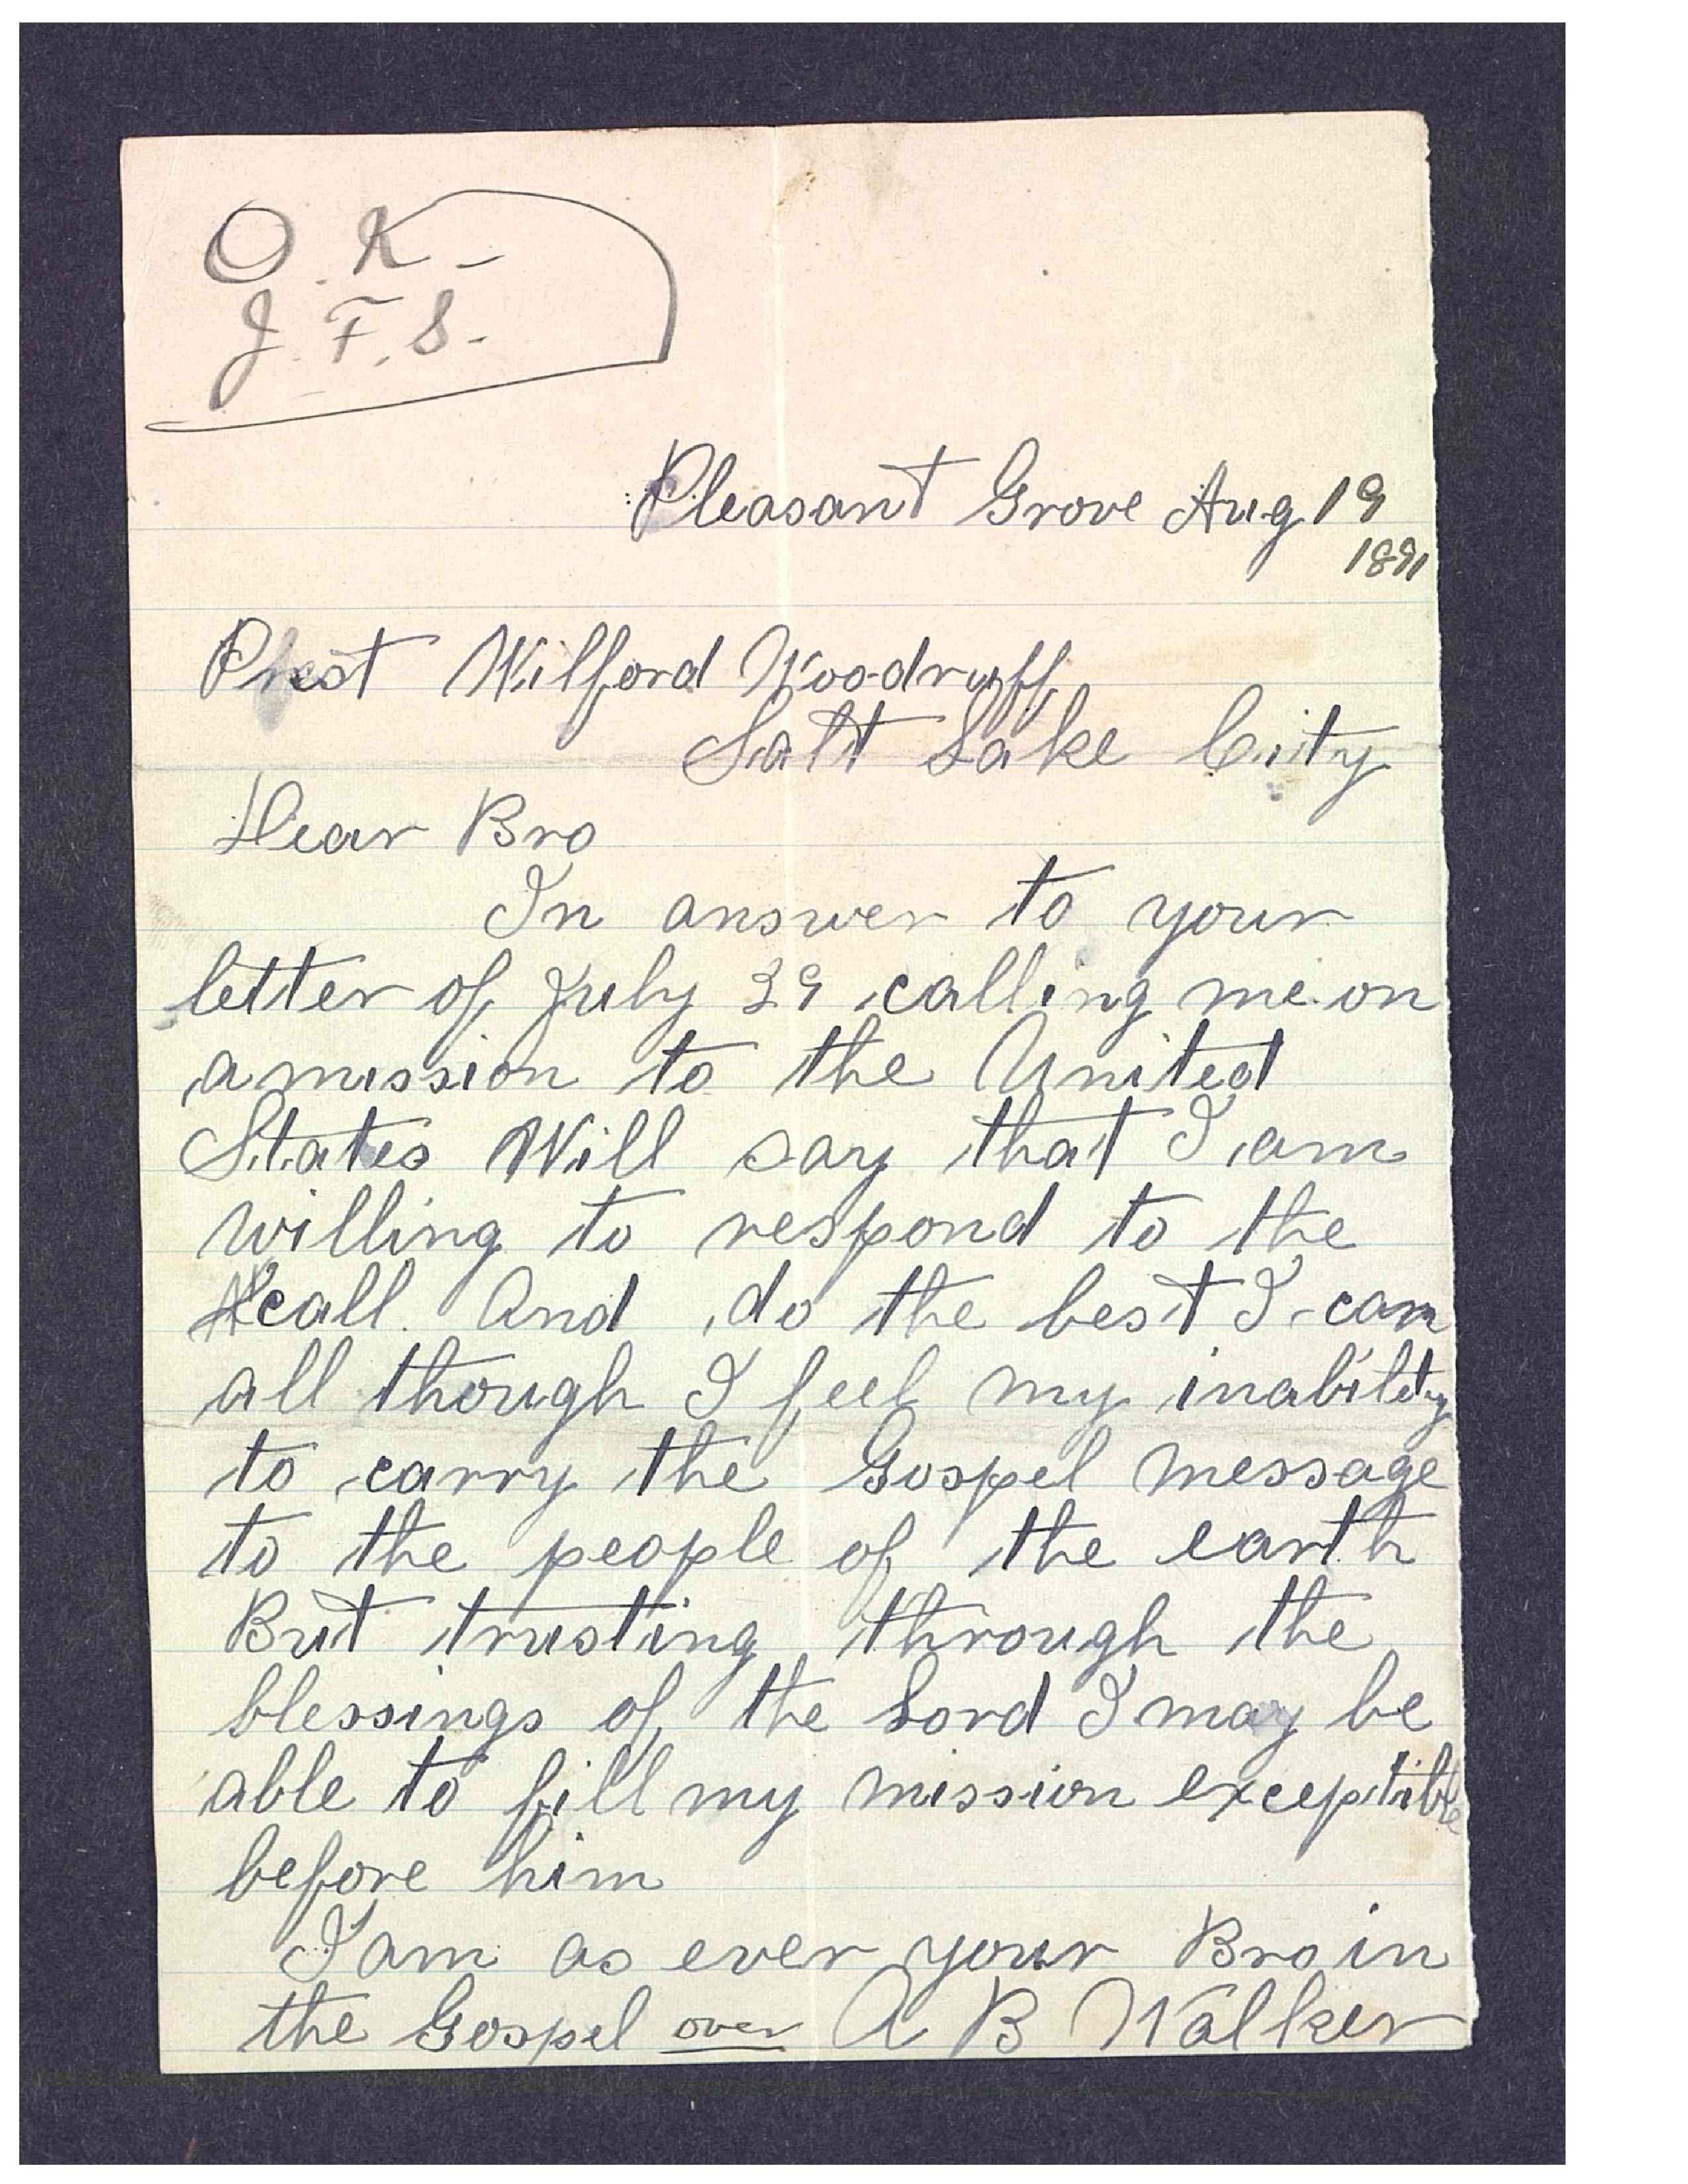 O.K-
J.F.S.
Pleasant Grove Aug 19
1891
Prest Wilford Woodruff
Salt Lake City
Dear Bro
In answer to your
letter of July 39 calling me on
a mission to the United
States Will say that I am
willing to respond to the
call. And do the best I can
all though I feel my inability
to carry the Gospel message
to the people of the earth
But trusting through the
blessings of the Lord I may be
able to fill my mission exceptible
before him
I am as ever your Bro in
the Gospel over A B Walker